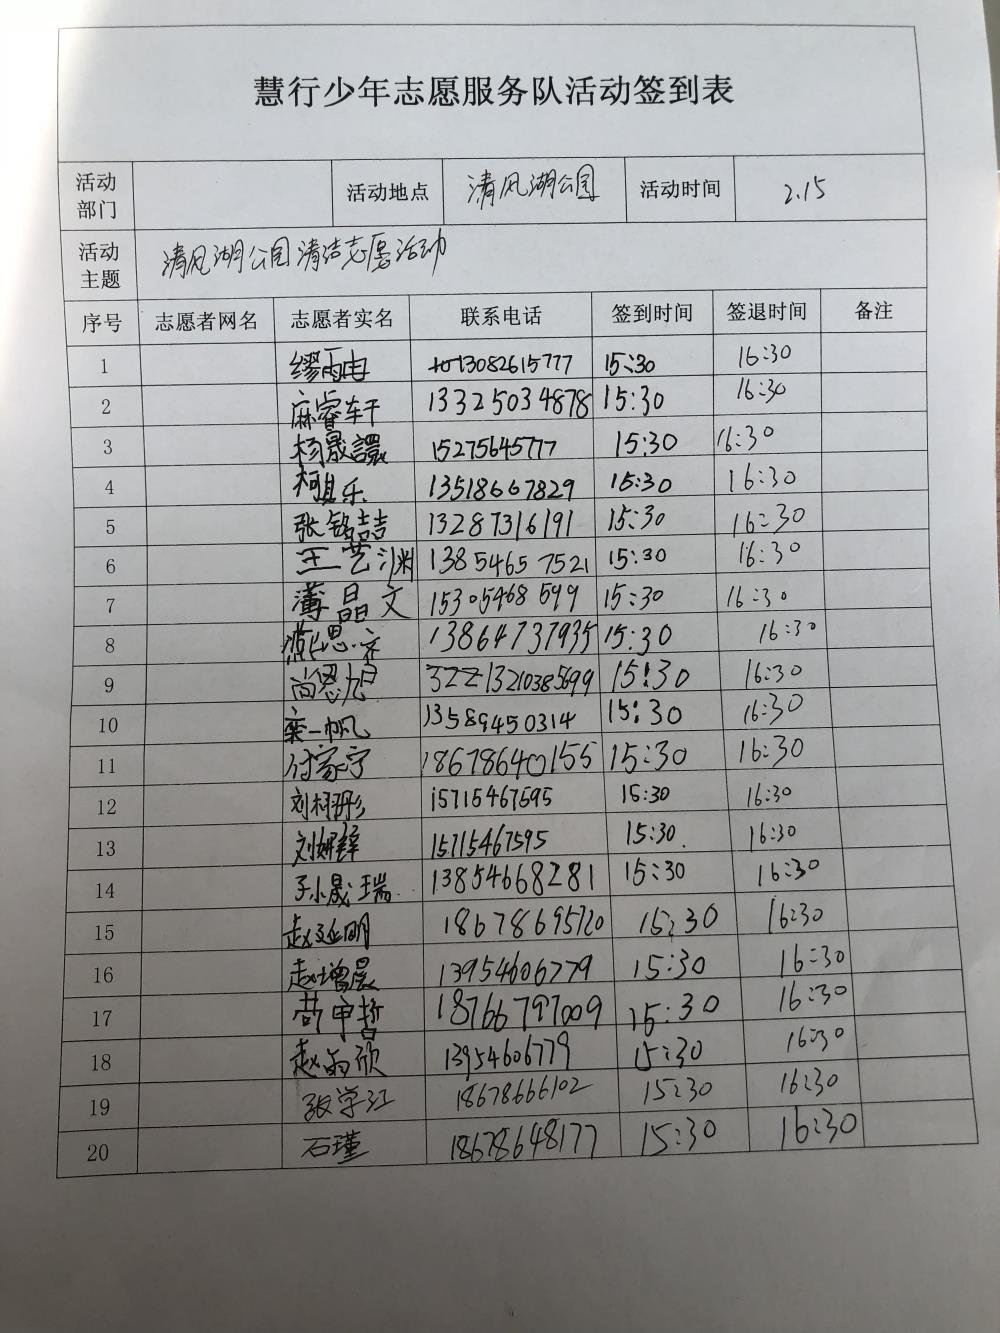 慧行少年志愿服务队活动签到表
活动部门 活动地点 清风湖公园 活动时间 2.15
活动主题 清风湖公园清洁志愿活动
序号 志愿者网名 志愿者实名 联系电话 签到时间 签退时间 备注
1 缪雨冉 13082615777 15:30 16:30
2 麻睿轩 13325034878 15:30 16:30
3 杨晟譞 15275645777 15:30 16:30
4 柯其乐 13518667829 15:30 16:30
5 张铭喆 13287316191 15:30 16:30
6 王艺渊 13854657521 15:30 16:30
7 薄晶文 15305468599 15:30 16:30
8 燕思齐 13864737935 15:30 16:30
9 尚恩旭 13210385699 15:30 16:30
10 栾一帆 13589450314 15:30 16:30
11 付家宁 18678640155 15:30 16:30
12 刘栩彤 15715467595 15:30 16:30
13 刘妍 15715467595 15:30 16:30
14 孙晟瑞 13854668281 15:30 16:30
15 赵延明 18678695720 15:30 16:30
16 赵增晨 13954606779 15:30 16:30
17 申哲 18766797009 15:30 16:30
18 赵雨欣 13954606779 15:30 16:30
19 张学江 18678666102 15:30 16:30
20 石瑾 18678648177 15:30 16:30